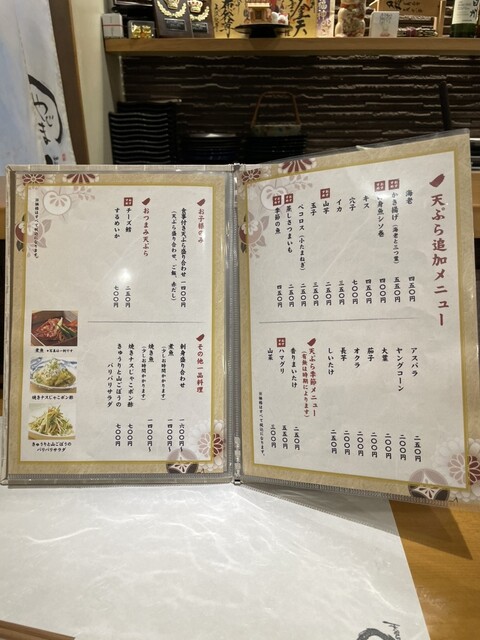 天ぷら追加メニュー
海老 四五〇円
かき揚げ（海老と三つ葉） 五五〇円
白身魚シソ巻 四〇〇円
キス 四〇〇円
穴子 五五〇円
イカ 三五〇円
山芋 二五〇円
玉子
ペコロス（小たまねぎ） 二五〇円
蒸しさつまいも 二五〇円
季節の魚 四五〇円
アスパラ 二五〇円
ヤングコーン
大葉
茄子
オクラ
長芋
しいたけ
天ぷら季節メニュー
（有無は時期によります）
香りまいたけ 二五〇円
ハマグリ 五五〇円
山菜 三〇〇円
お子様のみ
食事付き天ぷら盛り合わせ 一四〇〇円
（天ぷら盛り合わせ、ご飯、赤だし）
おつまみ天ぷら
チーズ鱈 七五〇円
するめいか 七〇〇円
その他一品料理
刺身盛り合わせ 一六〇〇円〜
煮魚 一四〇〇円〜
（少しお時間かかります）
焼き魚 一四〇〇円〜
（少しお時間かかります）
焼きナスじゃこポン酢 七〇〇円
きゅうりと山ごぼうの
パリパリサラダ 七〇〇円
煮魚
焼きナスじゃこポン酢
きゅうりと山ごぼうの
パリパリサラダ